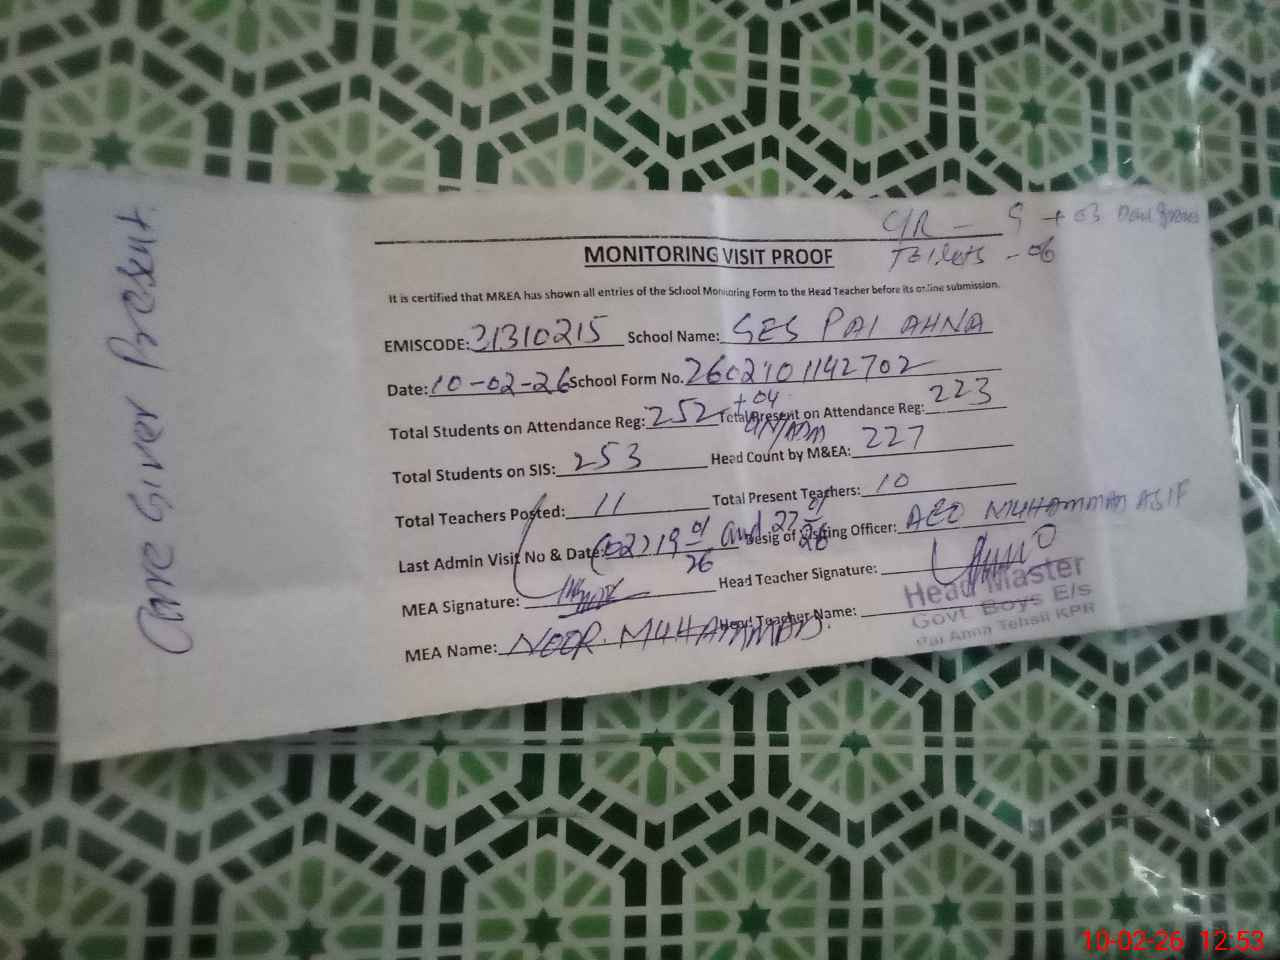 C/R - 9 + 03
Toilets - 06
MONITORING VISIT PROOF
It is certified that M&EA has shown all entries of the School Monitoring Form to the Head Teacher before its online submission.
EMISCODE: 31310215 School Name: GES PAI AHNA
Date: 10-02-26 School Form No. 2602101142702
Total Students on Attendance Reg: 252 + 04 UN/ADM Total Present on Attendance Reg: 223
Total Students on SIS: 253 Head Count by M&EA: 227
Total Teachers Posted: 11 Total Present Teachers: 10
Last Admin Visit No & Date: (02) 19 01 26 and 27 01 26 Desig of Visiting Officer: AEO MUHAMMAD ASIF
MEA Signature: Head Teacher Signature:
MEA Name: NOOR MUHAMMAD. Head Teacher Name:
Head Master
Govt. Boys E/s
Pai Anna Tehsil KPR
Care Giver Present.
10-02-26 12:53